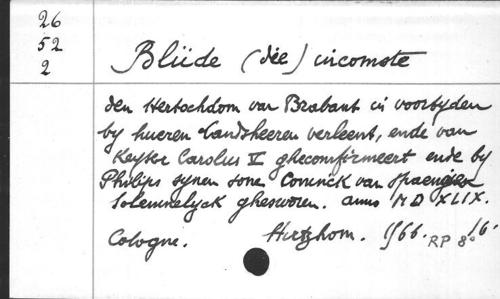 26
52
2
Blijde (die) incomste
den Hertochdom van Brabant in voortyden
by hueren Landsheeren verleent, ende van
Keyser Carolus V gheconfirmeert ende by
Philips synen sone Coninck van Spaengien
Solemnelyck ghesworen. anno MDXLIX.
Cologne. 1566. 16°
RP 8°